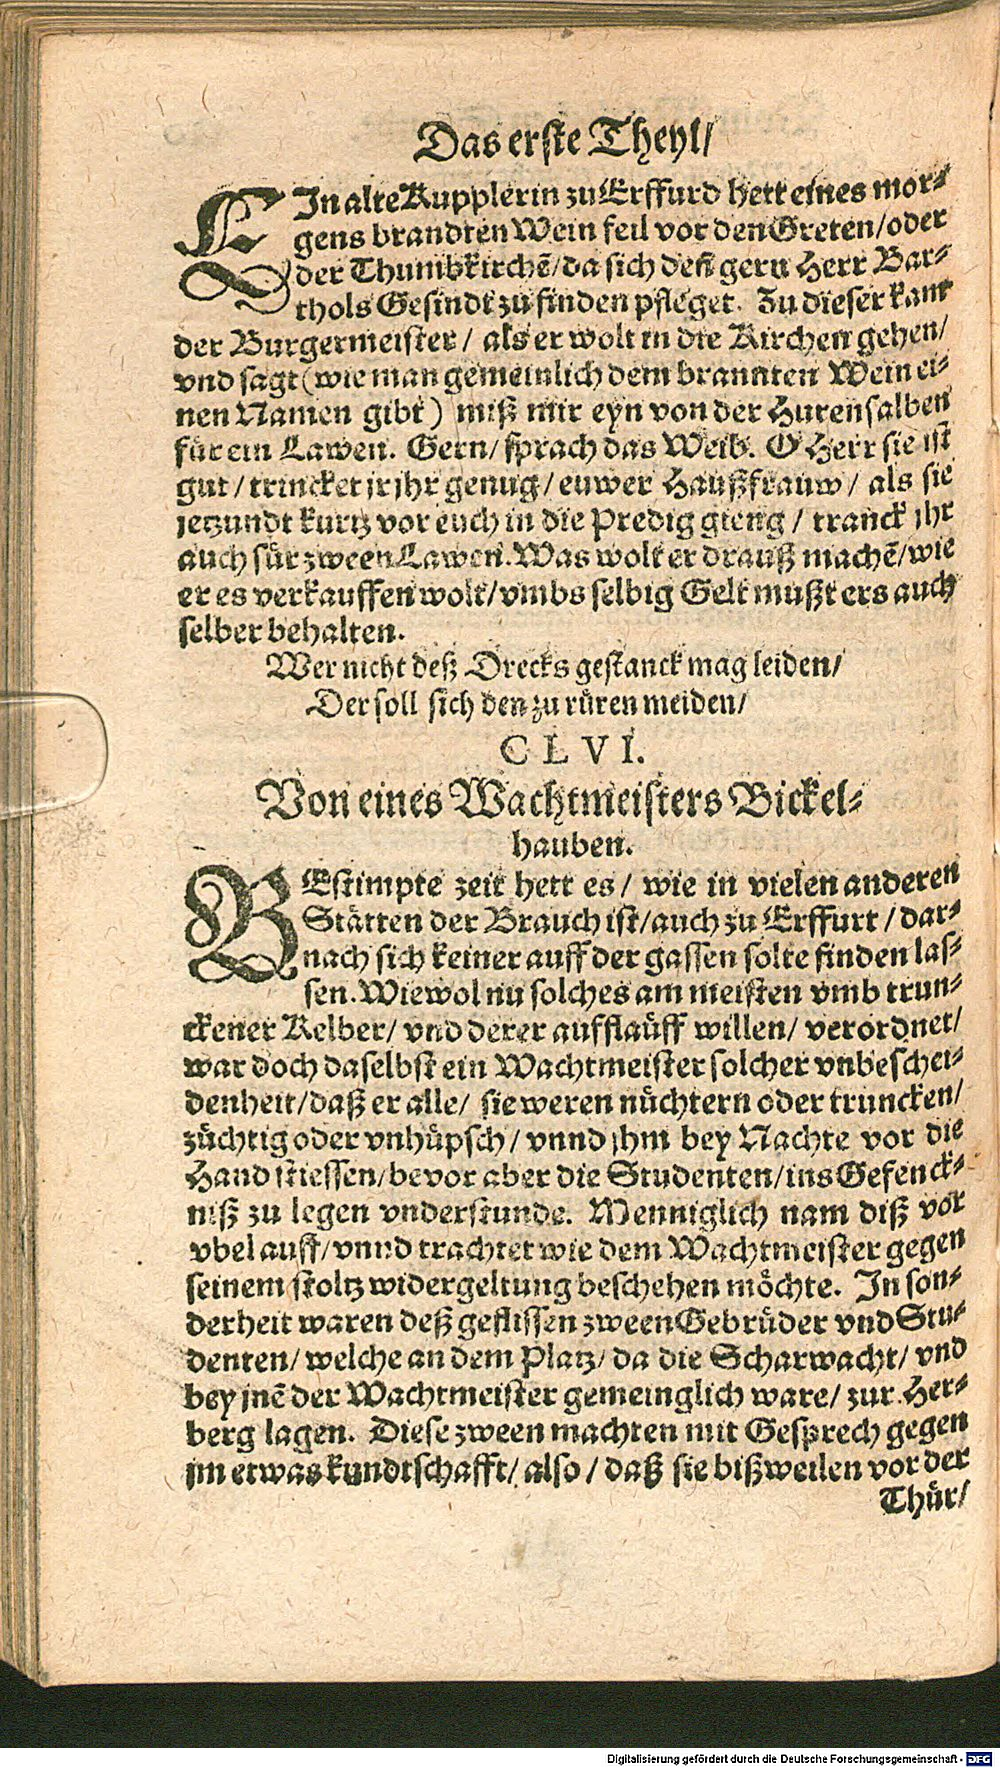 Das erste Theyl/
EIn alte Kupplerin zu Erffurd hett eines mor-
gens brandten Wein feil vor den Greten/oder
der Thumbkirchẽ/da sich deñ gern Herr Bar-
thols Gesindt zu finden pfleget. Zu dieser kam
der Burgermeister / als er wolt in die Kirchen gehen/
vnd sagt (wie man gemeinlich dem brannten Wein ei-
nen Namen gibt) miß mir eyn von der Hurensalben
für ein Lawen. Gern/ sprach das Weib. O Herr sie ist
gut / trincket jr jhr genug / euwer Haußfrauw / als sie
jetzundt kurtz vor euch in die Predig gieng / tranck jhr
auch für zween Lawen. Was wolt er drauß machẽ/wie
er es verkauffen wolt/vmbs selbig Gelt mußt ers auch
selber behalten.
Wer nicht deß Drecks gestanck mag leiden/
Der soll sich den zu rüren meiden/
CLVI.
Von eines Wachtmeisters Bickel-
hauben.
BEstimpte zeit hett es / wie in vielen anderen
Stätten der Brauch ist/auch zu Erffurt / dar-
nach sich keiner auff der gassen solte finden las-
sen. Wiewol nu solches am meisten vmb trun-
ckener Kelber/ vnd derer aufflaüff willen/ verordnet/
war doch daselbst ein Wachtmeister solcher vnbeschei-
denheit/daß er alle/ sie weren nüchtern oder truncken/
züchtig oder vnhüpsch / vnnd jhm bey Nachte vor die
Hand stiessen/bevor aber die Studenten/ins Gefenck-
niß zu legen vnderstunde. Menniglich nam diß vor
vbel auff/vnnd trachtet wie dem Wachtmeister gegen
seinem stoltz widergeltung beschehen möchte. In son-
derheit waren deß geflissen zween Gebrüder vnd Stu-
denten/ welche an dem Platz/ da die Scharwacht/ vnd
bey jnẽ der Wachtmeister gemeinglich ware/ zur Her-
berg lagen. Diese zween machten mit Gesprech gegen
jm etwas kundtschafft/ also / daß sie bißweilen vor der
Thür/
Digitalisierung gefördert durch die Deutsche Forschungsgemeinschaft - DFG